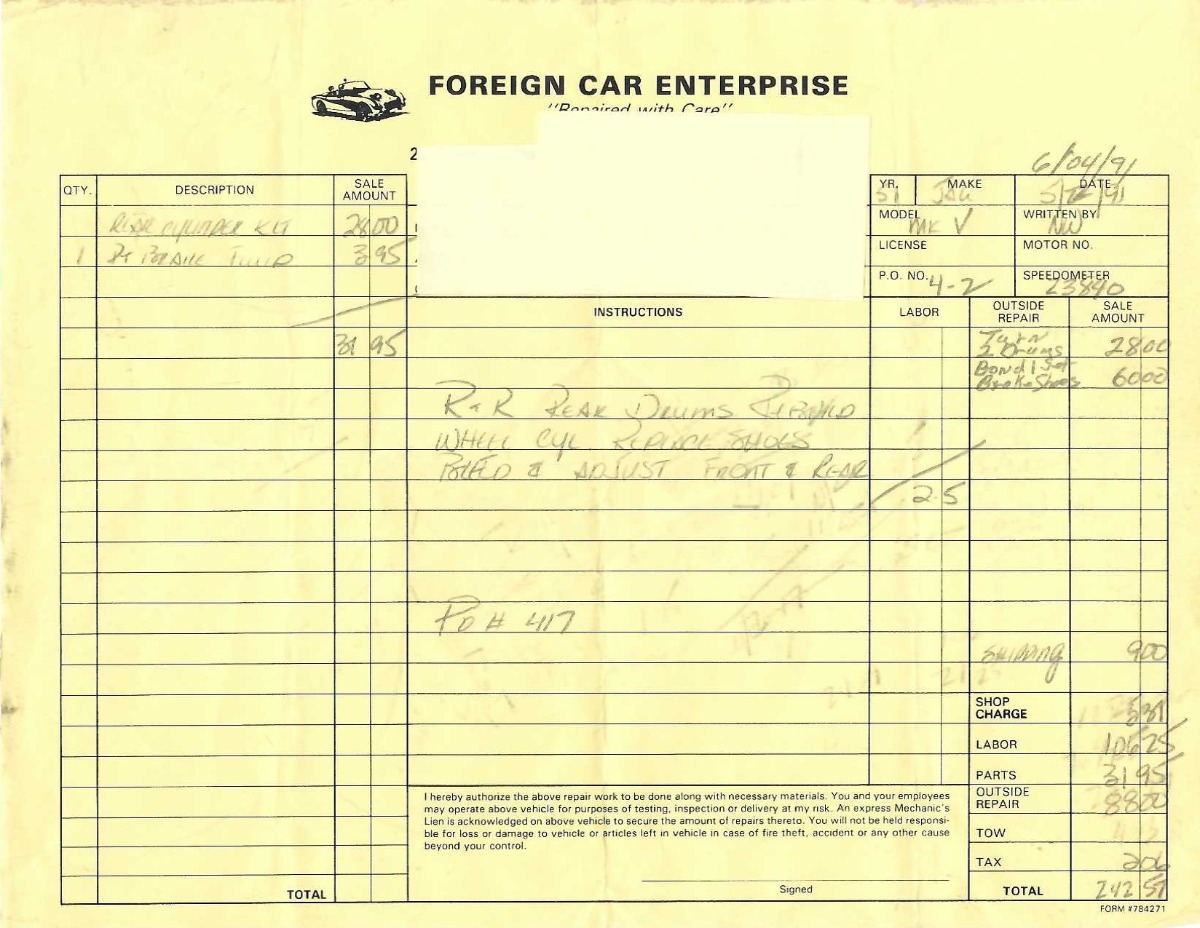 FOREIGN CAR ENTERPRISE
"Repaired with Care"
2
6/04/91
QTY.
DESCRIPTION
SALE AMOUNT
YR.
51
MAKE
JAG
DATE
MODEL
MK V
WRITTEN BY
NW
LICENSE
MOTOR NO.
P.O. NO.
4-2
SPEEDOMETER
23840
REAR CYLINDER KIT 28 00
1 Pt BRAKE FLUID 3 95
31 95
INSTRUCTIONS
LABOR
OUTSIDE REPAIR
SALE AMOUNT
Turn
2 Drums 28 00
Bond 1 Set
Brake Shoes 60 00
R & R REAR DRUMS
WHEEL CYL REPLACE SHOES
BLEED & ADJUST FRONT & REAR
2.5
PO # 417
SHIPPING 9 00
SHOP CHARGE 5 31
LABOR 106 25
PARTS 31 95
OUTSIDE REPAIR 88 00
TOW
TAX 2 06
TOTAL 242 57
I hereby authorize the above repair work to be done along with necessary materials. You and your employees
may operate above vehicle for purposes of testing, inspection or delivery at my risk. An express Mechanic's
Lien is acknowledged on above vehicle to secure the amount of repairs thereto. You will not be held responsi-
ble for loss or damage to vehicle or articles left in vehicle in case of fire theft, accident or any other cause
beyond your control.
Signed
TOTAL
FORM #784271